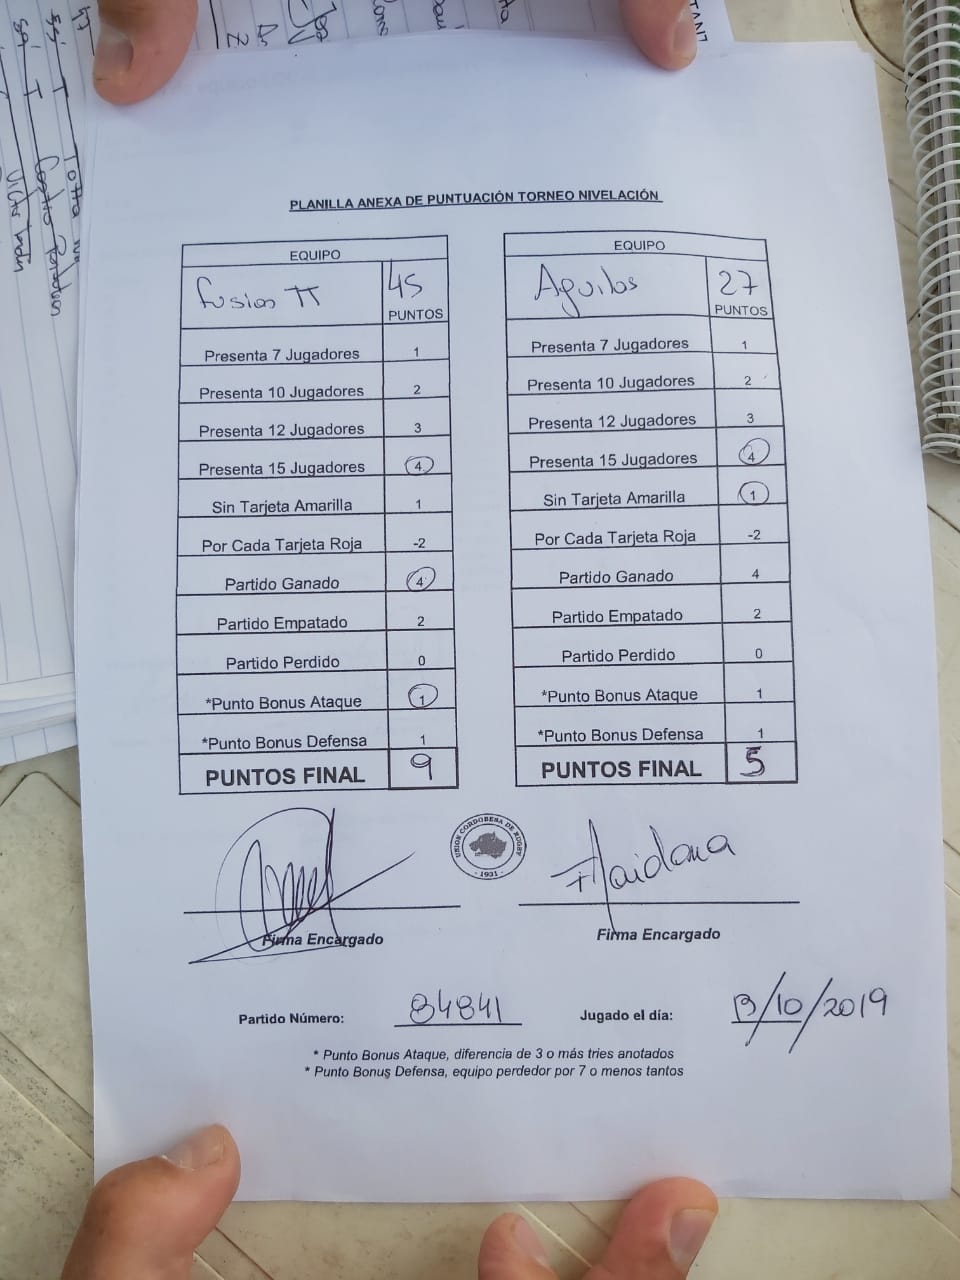 PLANILLA ANEXA DE PUNTUACIÓN TORNEO NIVELACIÓN
EQUIPO
Fusion TT 45
PUNTOS
Presenta 7 Jugadores 1
Presenta 10 Jugadores 2
Presenta 12 Jugadores 3
Presenta 15 Jugadores 4
Sin Tarjeta Amarilla 1
Por Cada Tarjeta Roja -2
Partido Ganado 4
Partido Empatado 2
Partido Perdido 0
*Punto Bonus Ataque 1
*Punto Bonus Defensa 1
PUNTOS FINAL 9
EQUIPO
Aguilas 27
PUNTOS
Presenta 7 Jugadores 1
Presenta 10 Jugadores 2
Presenta 12 Jugadores 3
Presenta 15 Jugadores 4
Sin Tarjeta Amarilla 1
Por Cada Tarjeta Roja -2
Partido Ganado 4
Partido Empatado 2
Partido Perdido 0
*Punto Bonus Ataque 1
*Punto Bonus Defensa 1
PUNTOS FINAL 5
UNION CORDOBESA DE RUGBY
- 1931 -
Maidana
Firma Encargado
Firma Encargado
Partido Número: 84841 Jugado el día: 13/10/2019
* Punto Bonus Ataque, diferencia de 3 o más tries anotados
* Punto Bonus Defensa, equipo perdedor por 7 o menos tantos